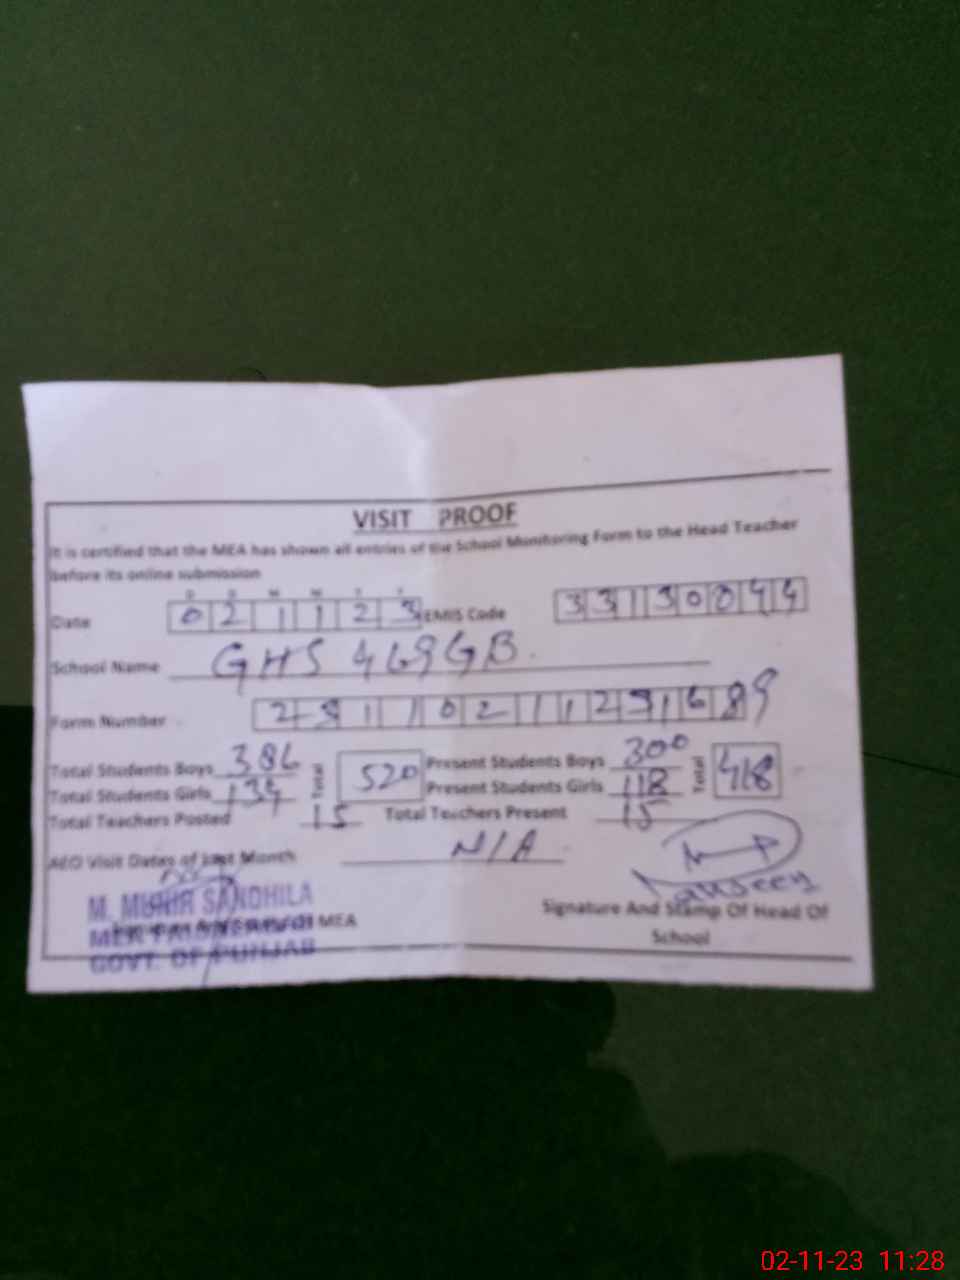 VISIT PROOF
It is certified that the MEA has shown all entries of the School Monitoring Form to the Head Teacher
before its online submission
D D M M Y Y
Date 021123 EMIS Code 33130044
School Name GHS 469GB.
Form Number
Total Students Boys 386 Total 520 Present Students Boys 300 Total 418
Total Students Girls 134 Present Students Girls 118
Total Teachers Posted 15 Total Teachers Present 15
AEO Visit Dates of Last Month N/A
M. MUNIR SANDHILA
MEA
GOVT. OF PUNJAB
MEA
Signature And Stamp Of Head Of
School
02-11-23 11:28